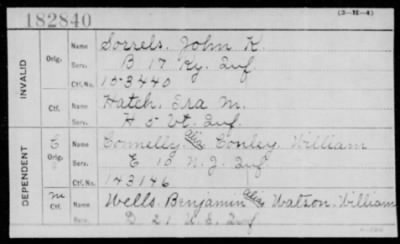 182840
(3-H-4)
INVALID
Orig.
Name Sorrels, John K.
Serv. B 17 Ky. Inf.
Ctf. No. 153440
Ctf.
Name Hatch, Ira M.
Serv. H 5 Vt. Inf.
DEPENDENT
Orig.
Name Connelly alias Conley, William
Serv. E 15 N.J. Inf.
Ctf. No. 143146
M
Ctf.
Name Wells, Benjamin alias Watson, William
Serv. D 21 U.S. Inf.